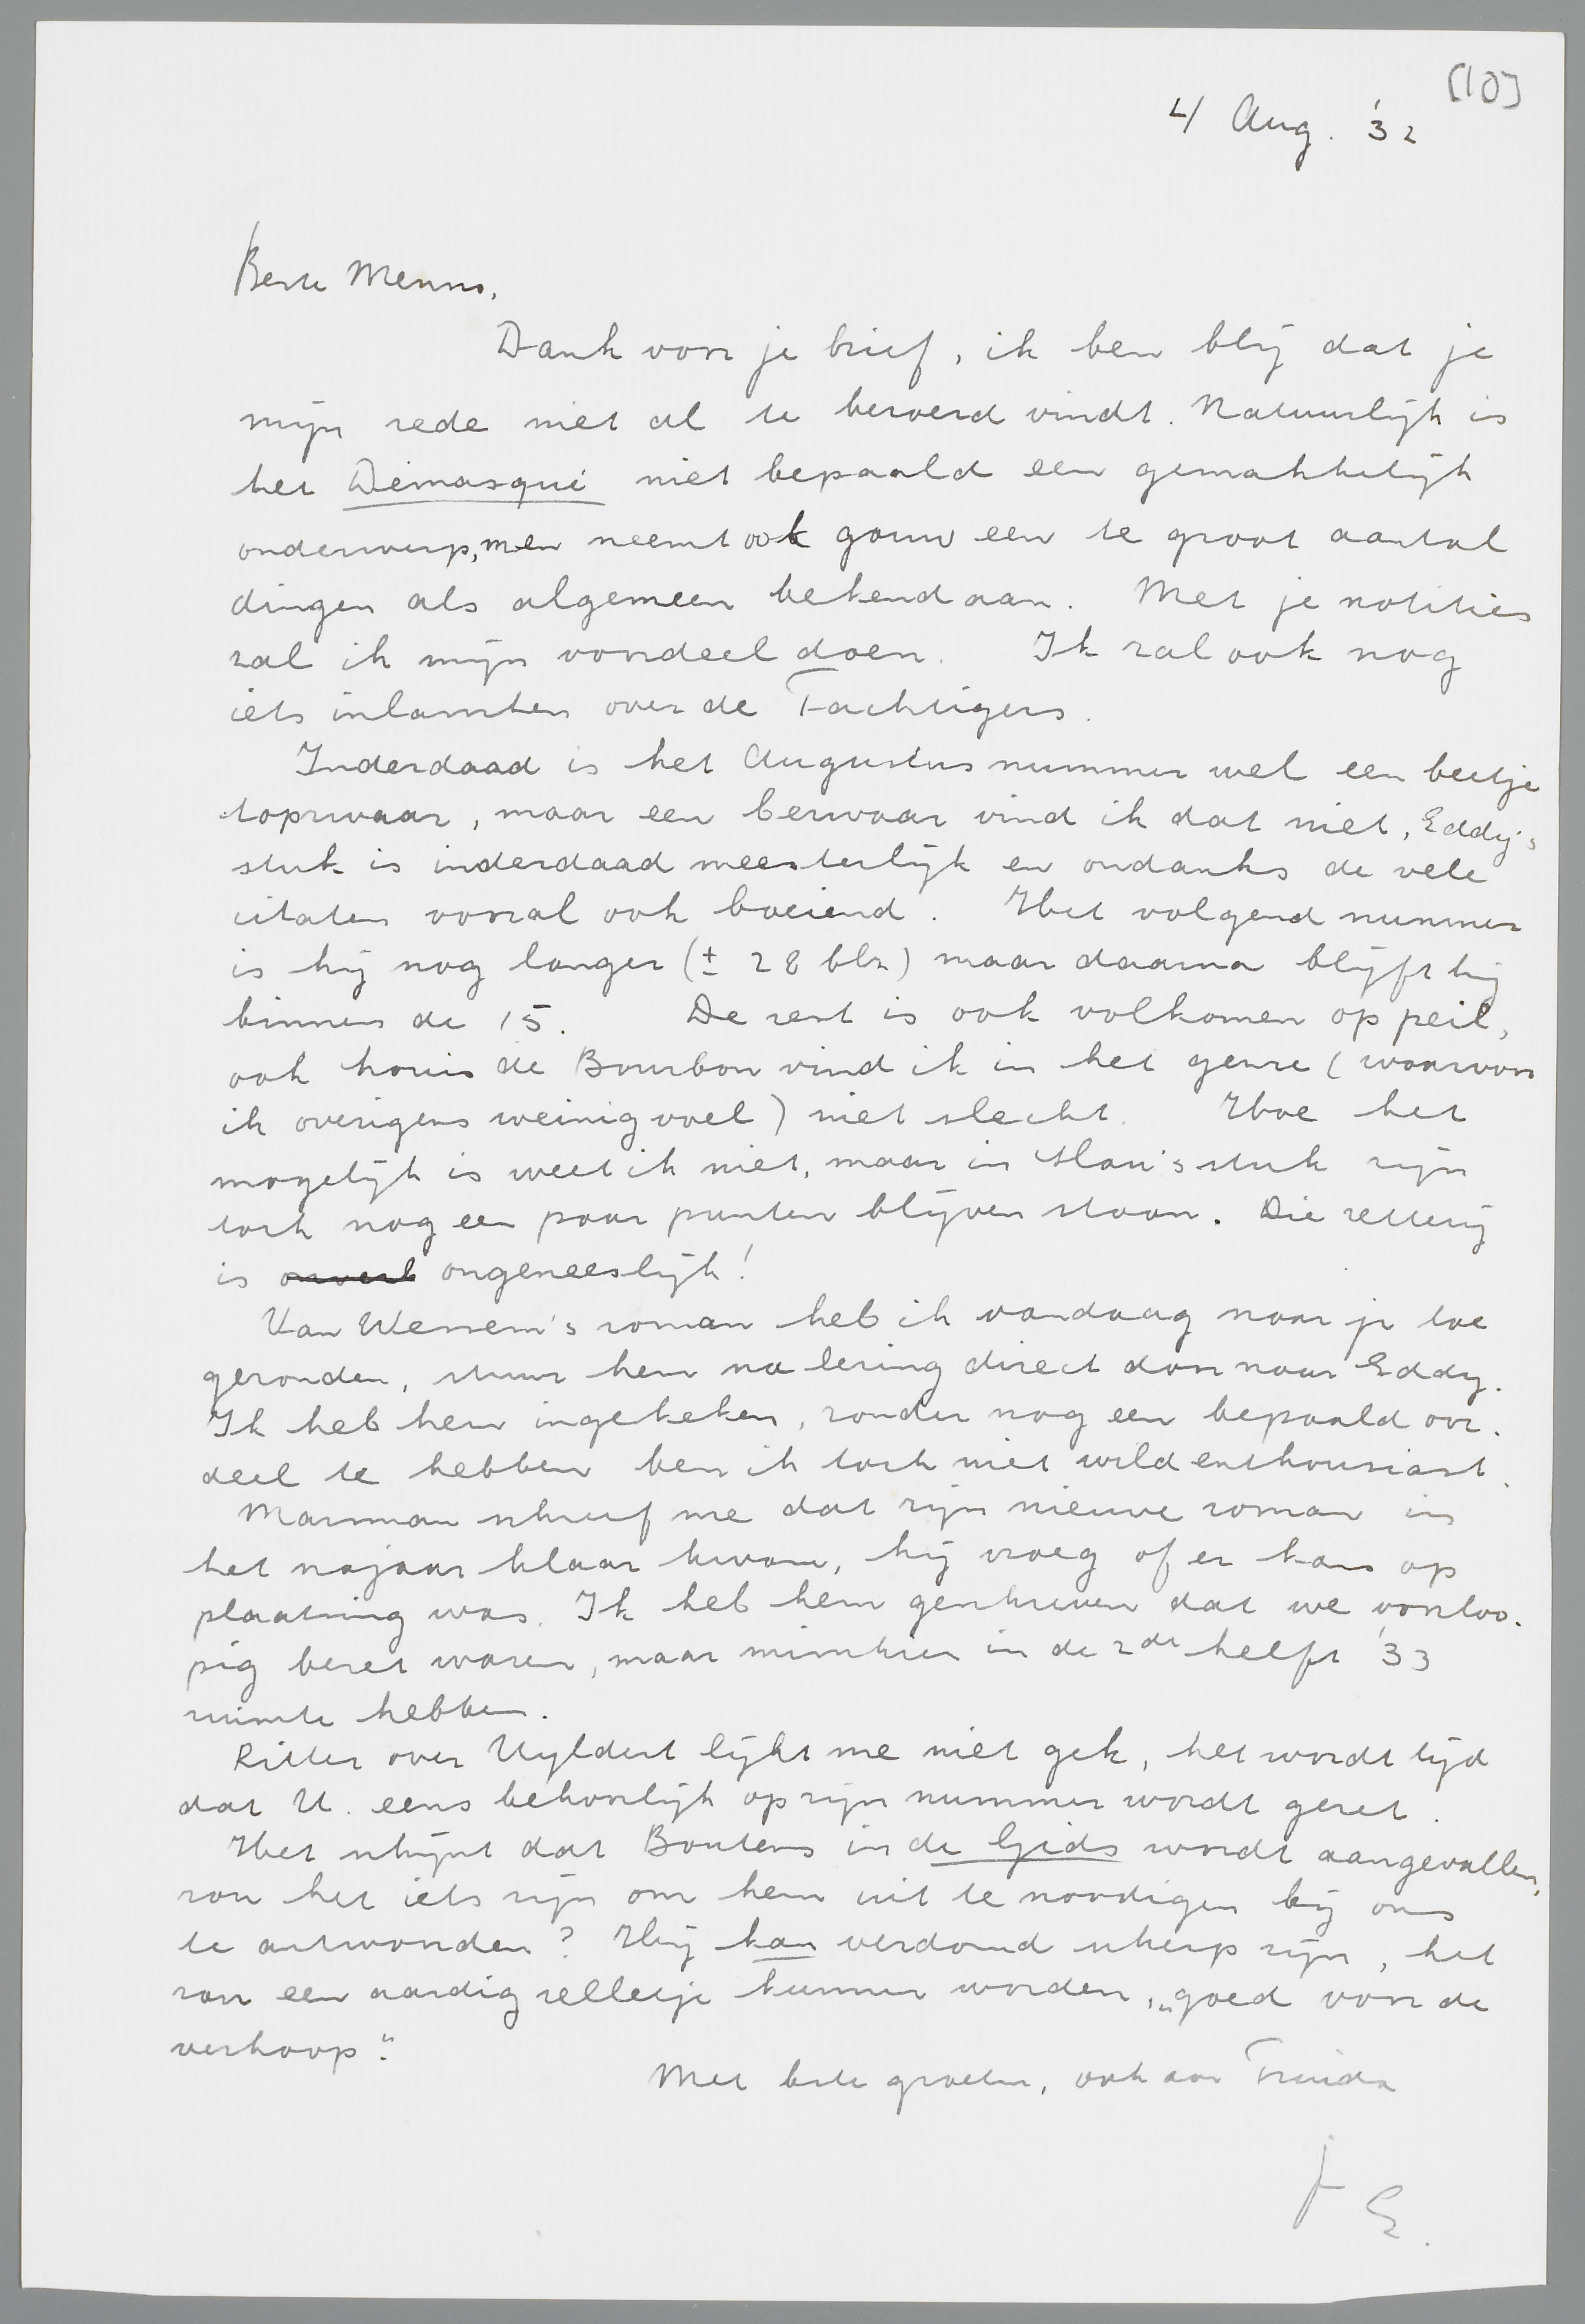 [10]
4 Aug. '32
Beste Menno,
Dank voor je brief, ik ben blij dat je
mijn rede niet al te beroerd vindt. Natuurlijk is
het Démasqué niet bepaald een gemakkelijk
onderwerp, men neemt ook gauw een te groot aantal
dingen als algemeen bekend aan. Met je notities
zal ik mijn voordeel doen. Ik zal ook nog
iets inlasschen over de Tachtigers.
Inderdaad is het Augustus nummer wel een beetje
topzwaar, maar een bezwaar vind ik dat niet, Eddy's
stuk is inderdaad meesterlijk en ondanks de vele
citaten vooral ook boeiend. Het volgend nummer
is hij nog langer (± 28 blz) maar daarna blijft hij
binnen de 15. De rest is ook volkomen op peil,
ook Louis de Bourbon vind ik in het genre (waarvoor
ik overigens weinig voel) niet slecht. Hoe het
mogelijk is weet ik niet, maar in Slau's stuk zijn
toch nog een paar punten blijven staan. Die zetterij
is ongeneeslijk!
Van Wessem's roman heb ik vandaag naar je toe
gezonden, stuur hem na lezing direct door naar Eddy.
Ik heb hem ingekeken, zonder nog een bepaald oor-
deel te hebben ben ik toch niet wild enthousiast.
Marsman schreef me dat zijn nieuwe roman in
het najaar klaar kwam, hij vroeg of er kans op
plaatsing was. Ik heb hem geschreven dat we voorloo-
pig bezet waren, maar misschien in de 2de helft '33
ruimte hebben.
Ritter over Uyldert lijkt me niet gek, het wordt tijd
dat U. eens behoorlijk op zijn nummer wordt gezet.
Het schijnt dat Boutens in de Gids wordt aangevallen,
zou het iets zijn om hem uit te noodigen bij ons
te antwoorden? Hij kan verdomd scherp zijn, het
zou een aardig relletje kunnen worden, „goed voor de
verkoop."
Met beste groeten, ook aan Truida